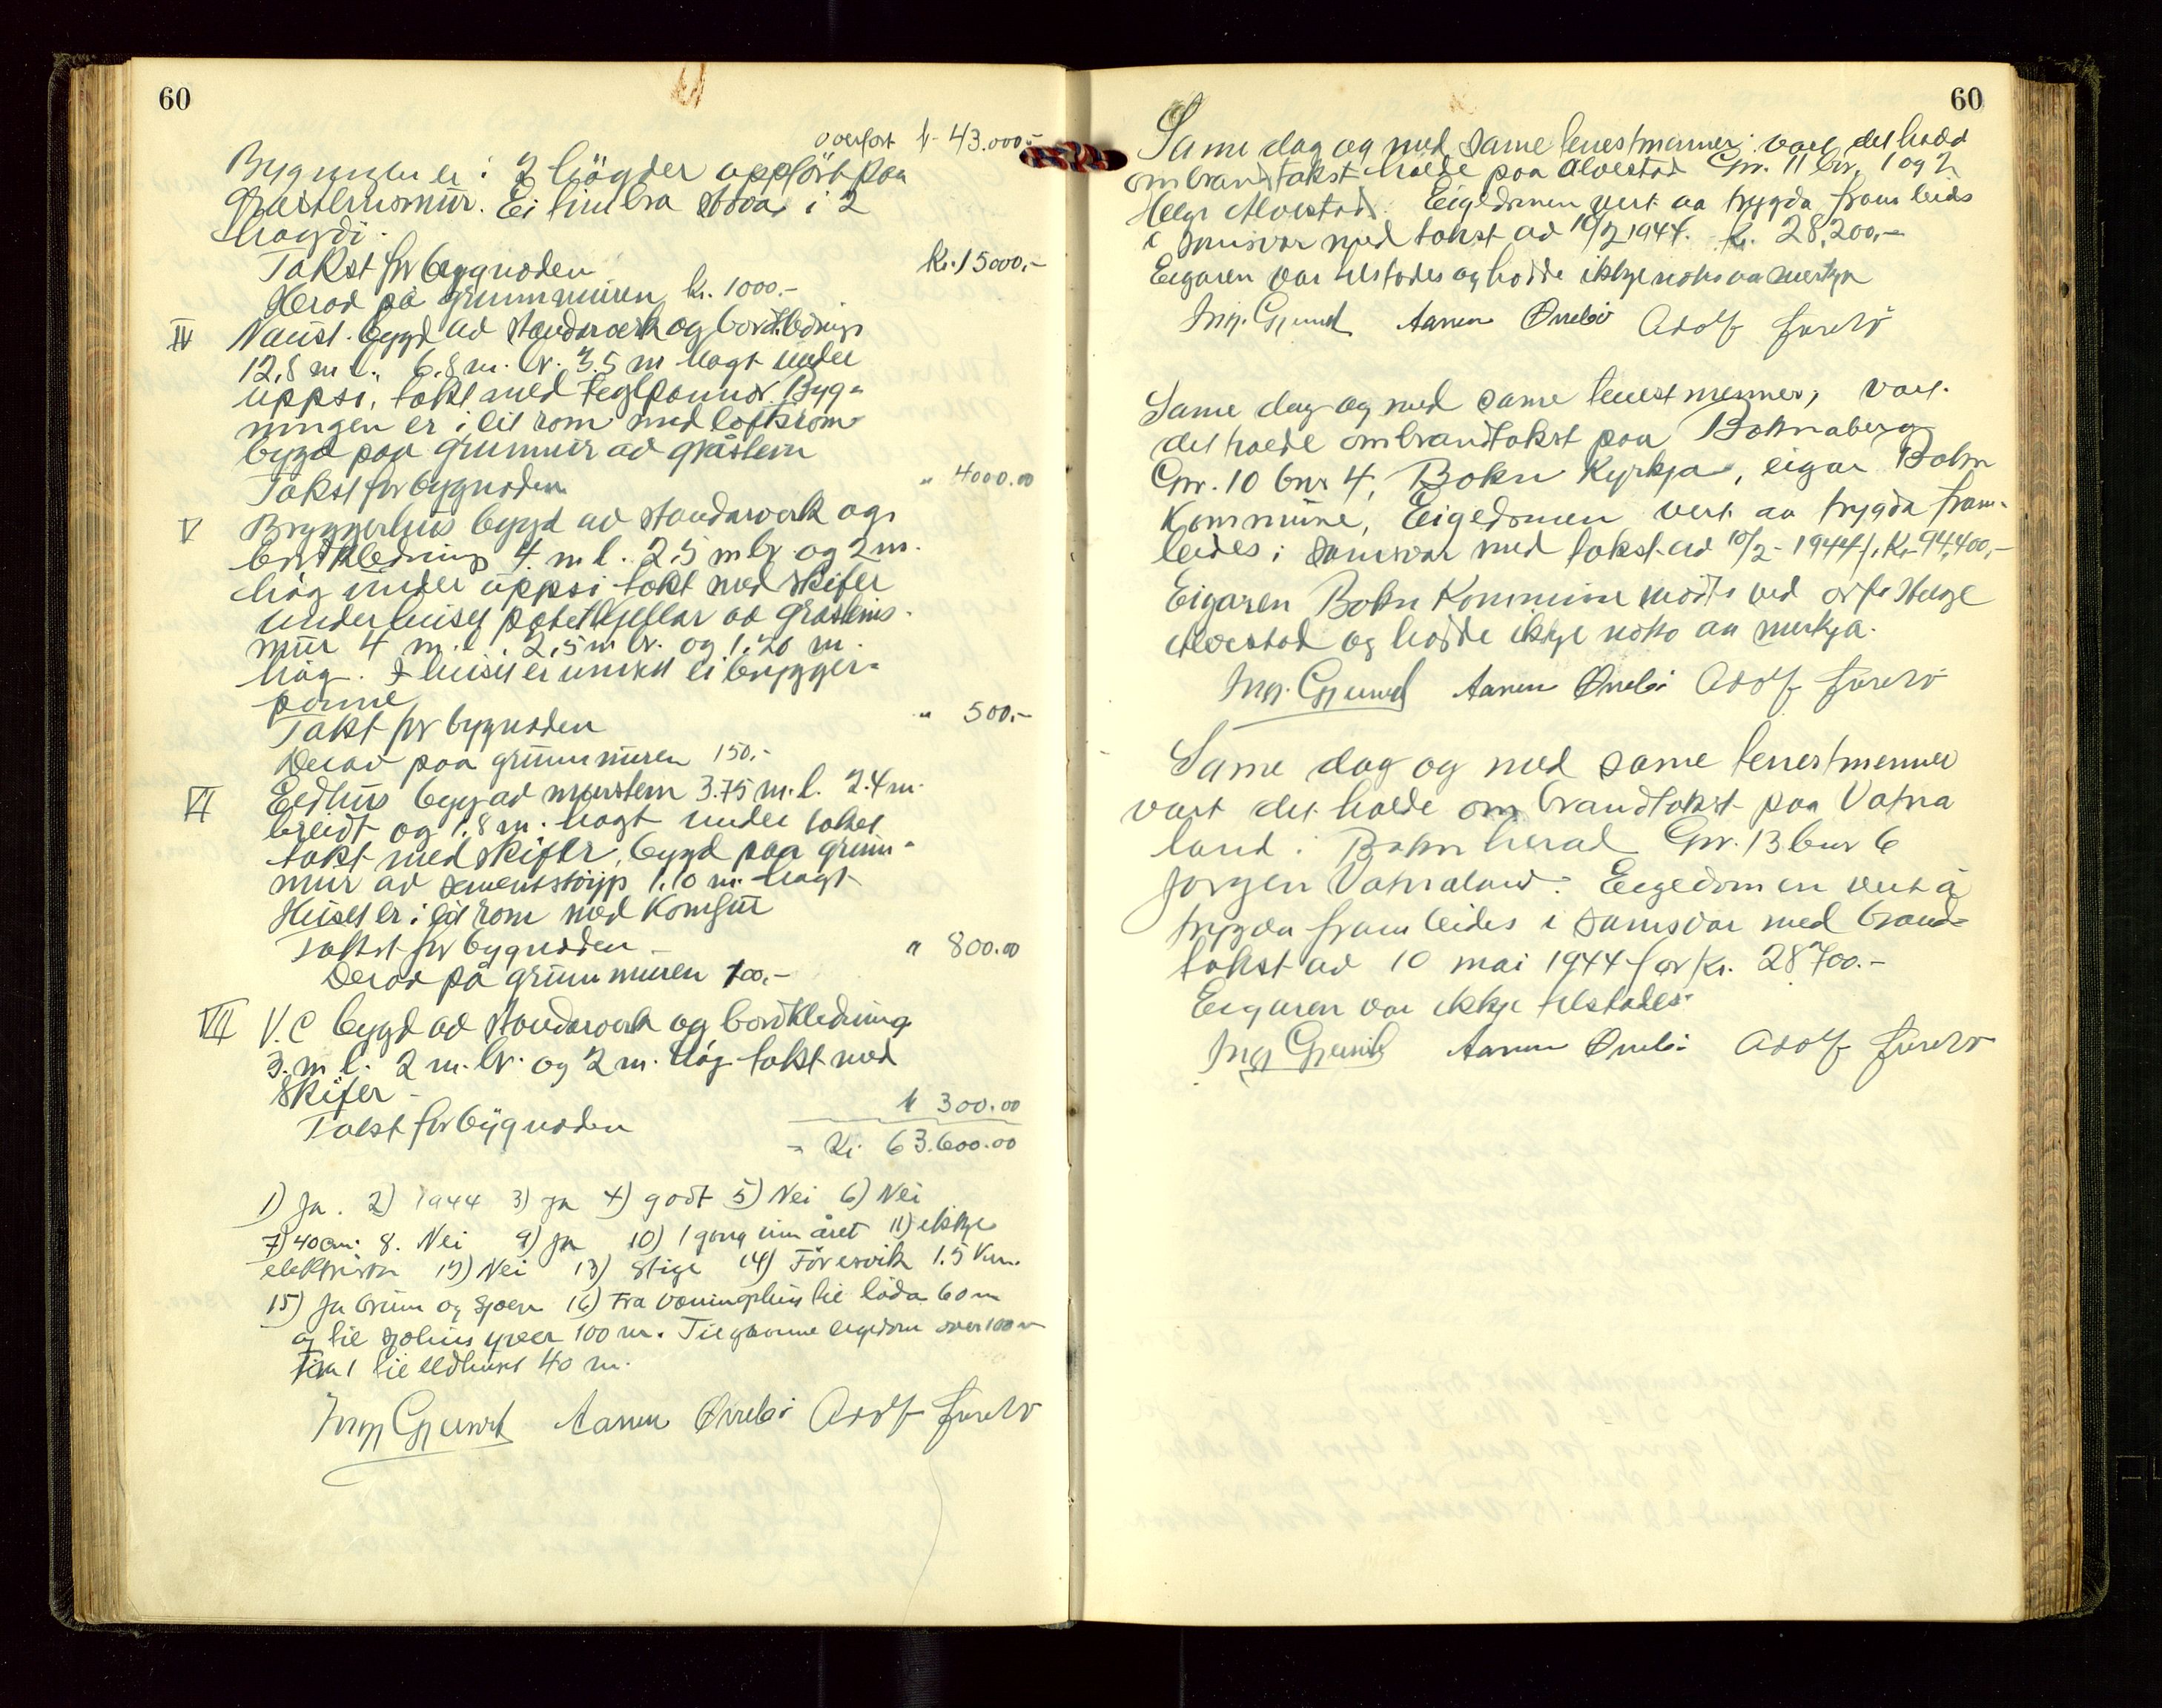 60
overført kr. 43.000.-
Bygningen er i 2 høgder oppført paa
graasteinsmur. Ei timbra stova i 2
høgdi.
Takst for bygnaden kr. 15000,-
Herav på grunnmuren kr. 1000.-
IV Naust. bygd av standarverk og bordkledning
12,8 m l., 6.8 m. br. 3.5 m høgt under
uppsi, takt med teglpannor. Byg-
ningen er i eit rom med loftsrom
bygd paa grunnmur av gråstein
Takst for bygnaden " 4000.00
V Bryggerhus bygd av standarverk og
bordkledning 4. m l. 2,5 m br. og 2 m.
høg under uppsi takt med skifer
under huset potetkjellar av graasteins-
mur 4 m. l. 2,5 m br. og 1,20 m.
høg. I huset er innsett ei brygger-
panne
Takst for bygnaden " 500.-
Derav paa grunnmuren 150.-
VI Eldhus bygd av murstein 3.75 m. l. 2.4 m.
breidt og 1,8 m. høgt under taket
takt med skifer, bygd paa grunn-
mur av sementstøyp 1.10 m. høgt
Huset er i eit rom med komfur
Takst for bygnaden " 800.00
Derav på grunnmuren 100.-
VII V.C bygd av standarverk og bordkledning
3. m l. 2 m. br. og 2 m. høg takt med
skifer -
Takst for bygnaden " 300.00
= Kr. 63.600.00
1) Ja. 2) 1944 3) Ja 4) godt 5) Nei 6) Nei
7) 40 cm. 8. Nei 9) Ja 10) 1 gong um året 11) ikkje
elektrisk 12) Nei 13) Stige 14) Føresvik 1.5 km.
15) Ja brunn og sjøen 16) Fra vaaningshus til løda 60 m
og til sjøhus yver 100 m. Til granne eigedom over 100 m
Fra 1 til eldhuset 40 m.
Ing. Gjerund Aanen Ørrebø Adolf Jørebø
60
Same dag og med same tenestmenner vart det halde
ombrandtakst halde paa Alvestad Gnr. 11 bnr. 1 og 2
Helge Alvestad. Eigedomen vert aa trygda framleides
i samsvar med takst av 10/2 1944. Kr. 28,200,-
Eigaren var tilstades og hadde ikkje noko aa merkja
Ing. Gjerund Aanen Ørrebø Adolf Jørebø
Same dag og med same tenestmenner, vart
det halde ombrandtakst paa Boknaberg
Gnr. 10 bnr 4, Bokn Kyrkja, eigar Bokn
Kommune, Eigedomen vert aa trygda fram-
leides i samsvar med takst av 10/2 - 1944 f. Kr. 94,400,-
Eigaren Bokn Kommune møtte ved ordfr Helge
Alvestad og hadde ikkje noko aa merkja.
Ing. Gjerund Aanen Ørrebø Adolf Jørebø
Same dag og med same tenestmenner
vart det halde ombrandtakst paa Vatna
land i Bokn herad Gnr. 13 bnr 6
Jørgen Vatnaland. Eigedomen vert å
trygda framleides i samsvar med brand-
takst av 10 mai 1944 for kr. 28700.-
Eigaren var ikkje tilstades.
Ing Gjerund Aanen Ørrebø Adolf Jørebø